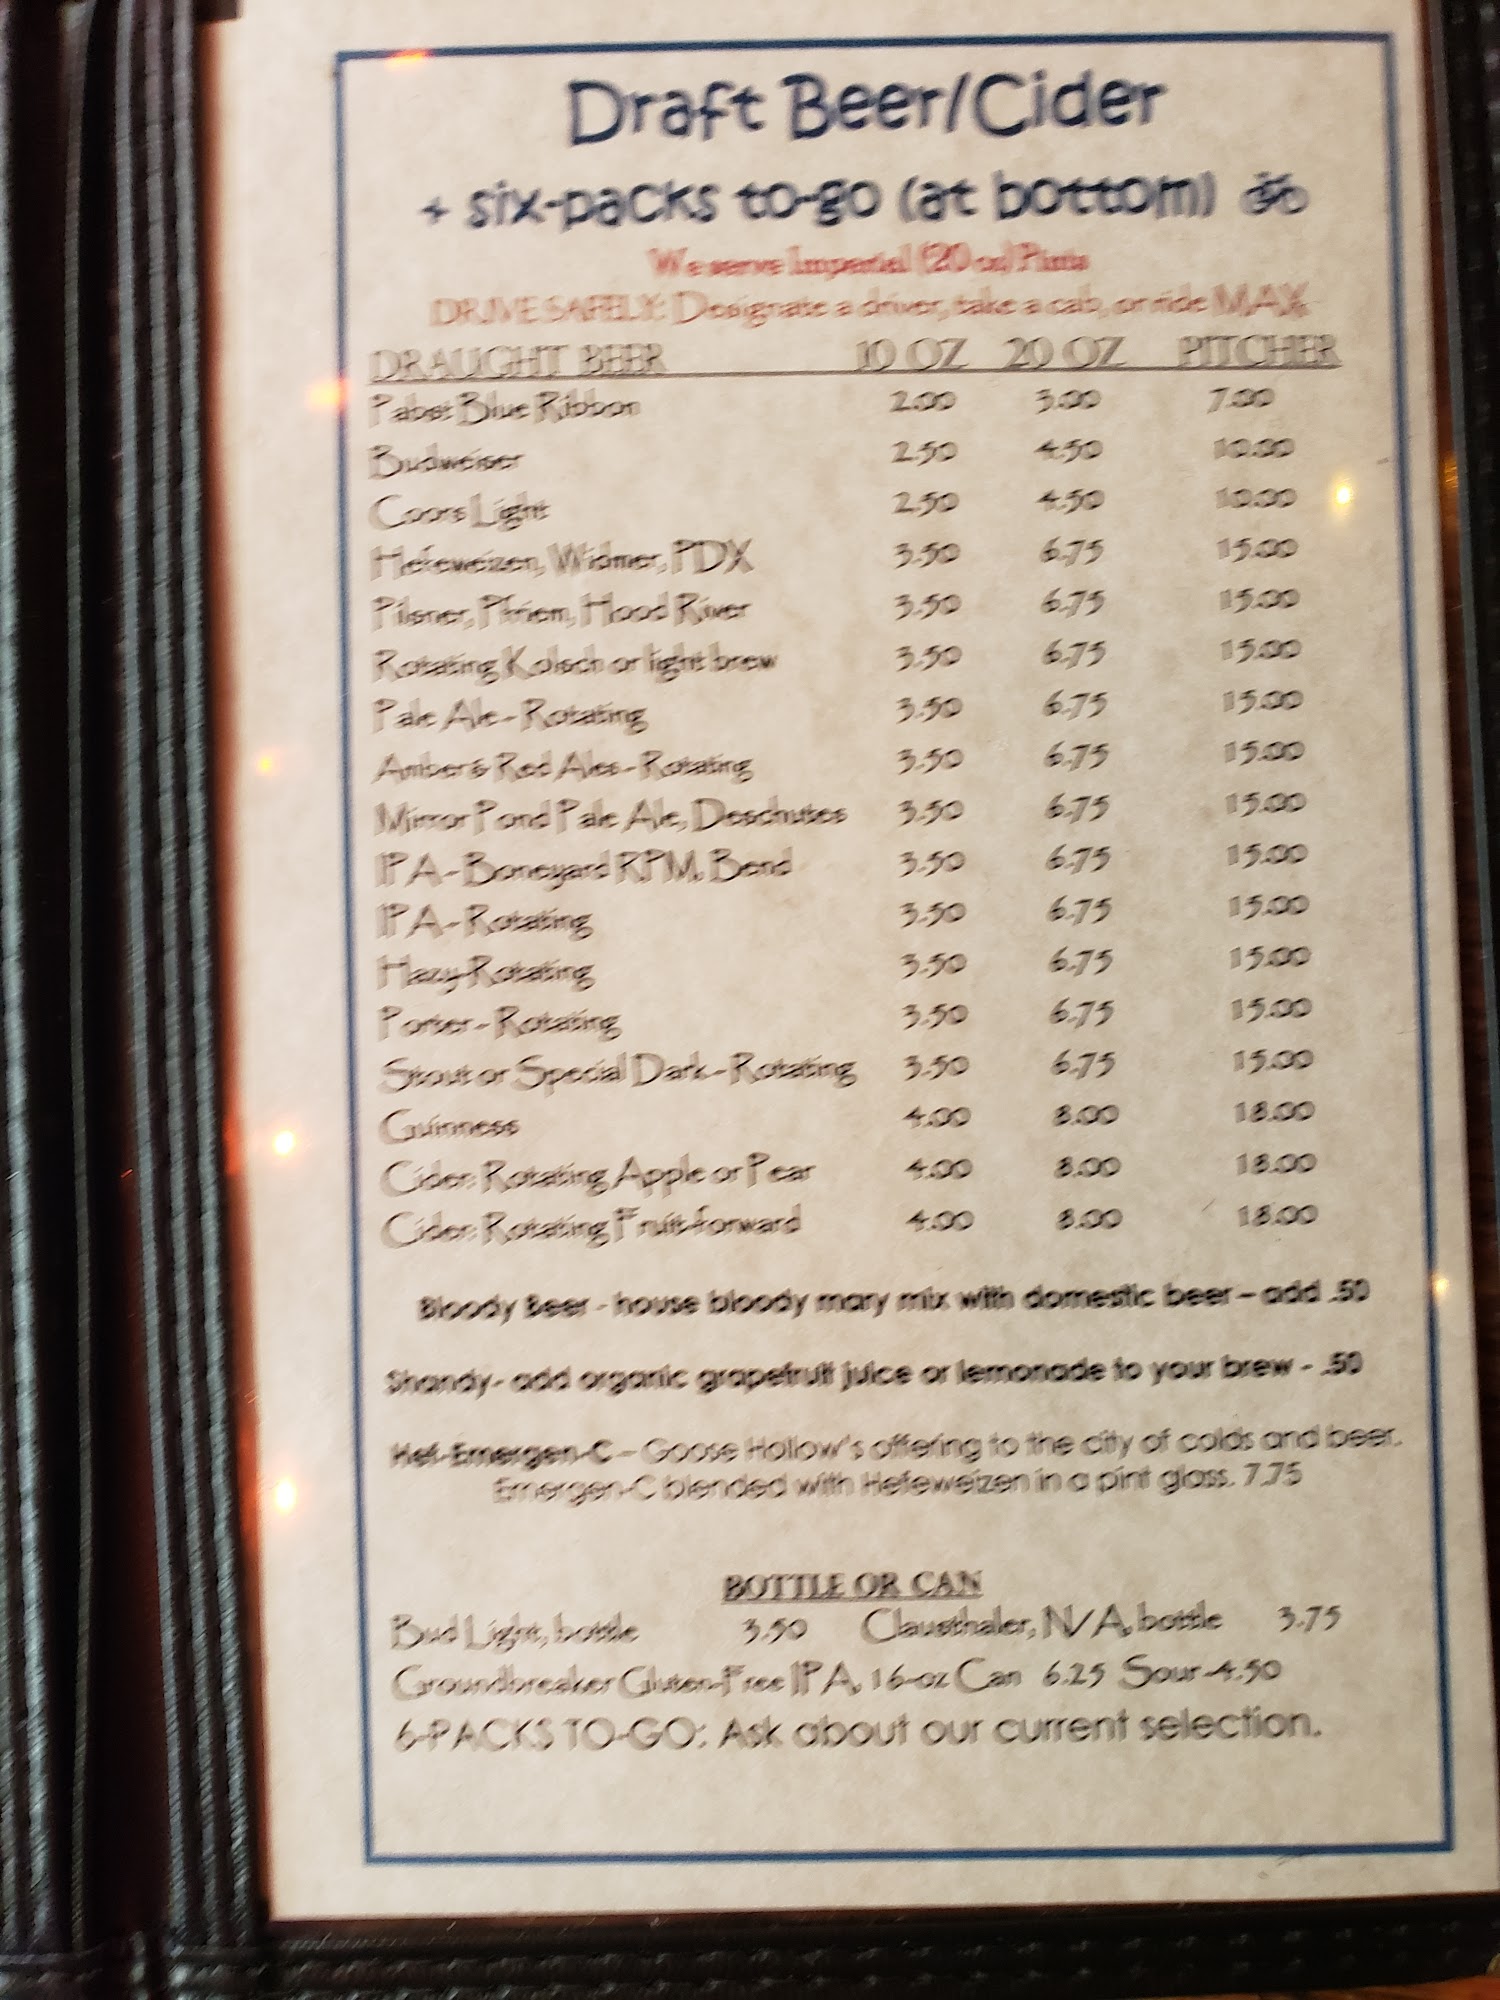 Draft Beer/Cider
+ six-packs to-go (at bottom)
We serve Imperial (20 oz) Pints
DRIVE SAFELY: Designate a driver, take a cab, or ride MAX.
DRAUGHT BEER 10 OZ 20 OZ PITCHER
Pabst Blue Ribbon 2.00 3.00 7.00
Budweiser 2.50 4.50 10.00
Coors Light 2.50 4.50 10.00
Hefeweizen, Widmer, PDX 3.50 6.75 15.00
Pilsner, Pfriem, Hood River 3.50 6.75 15.00
Rotating Kolsch or light brew 3.50 6.75 15.00
Pale Ale - Rotating 3.50 6.75 15.00
Amber & Red Ales - Rotating 3.50 6.75 15.00
Mirror Pond Pale Ale, Deschutes 3.50 6.75 15.00
IPA - Boneyard RPM, Bend 3.50 6.75 15.00
IPA - Rotating 3.50 6.75 15.00
Hazy-Rotating 3.50 6.75 15.00
Porter - Rotating 3.50 6.75 15.00
Stout or Special Dark - Rotating 3.50 6.75 15.00
Guinness 4.00 8.00 18.00
Cider: Rotating Apple or Pear 4.00 8.00 18.00
Cider: Rotating Fruit-forward 4.00 8.00 18.00
Bloody Beer - house bloody mary mix with domestic beer – add .50
Shandy- add organic grapefruit juice or lemonade to your brew - .50
Hef-Emergen-C – Goose Hollow's offering to the city of colds and beer.
Emergen-C blended with Hefeweizen in a pint glass. 7.75
BOTTLE OR CAN
Bud Light, bottle 3.50 Clausthaler, N/A, bottle 3.75
Groundbreaker Gluten-Free IPA, 16-oz Can 6.25 Sour-4.50
6-PACKS TO-GO: Ask about our current selection.